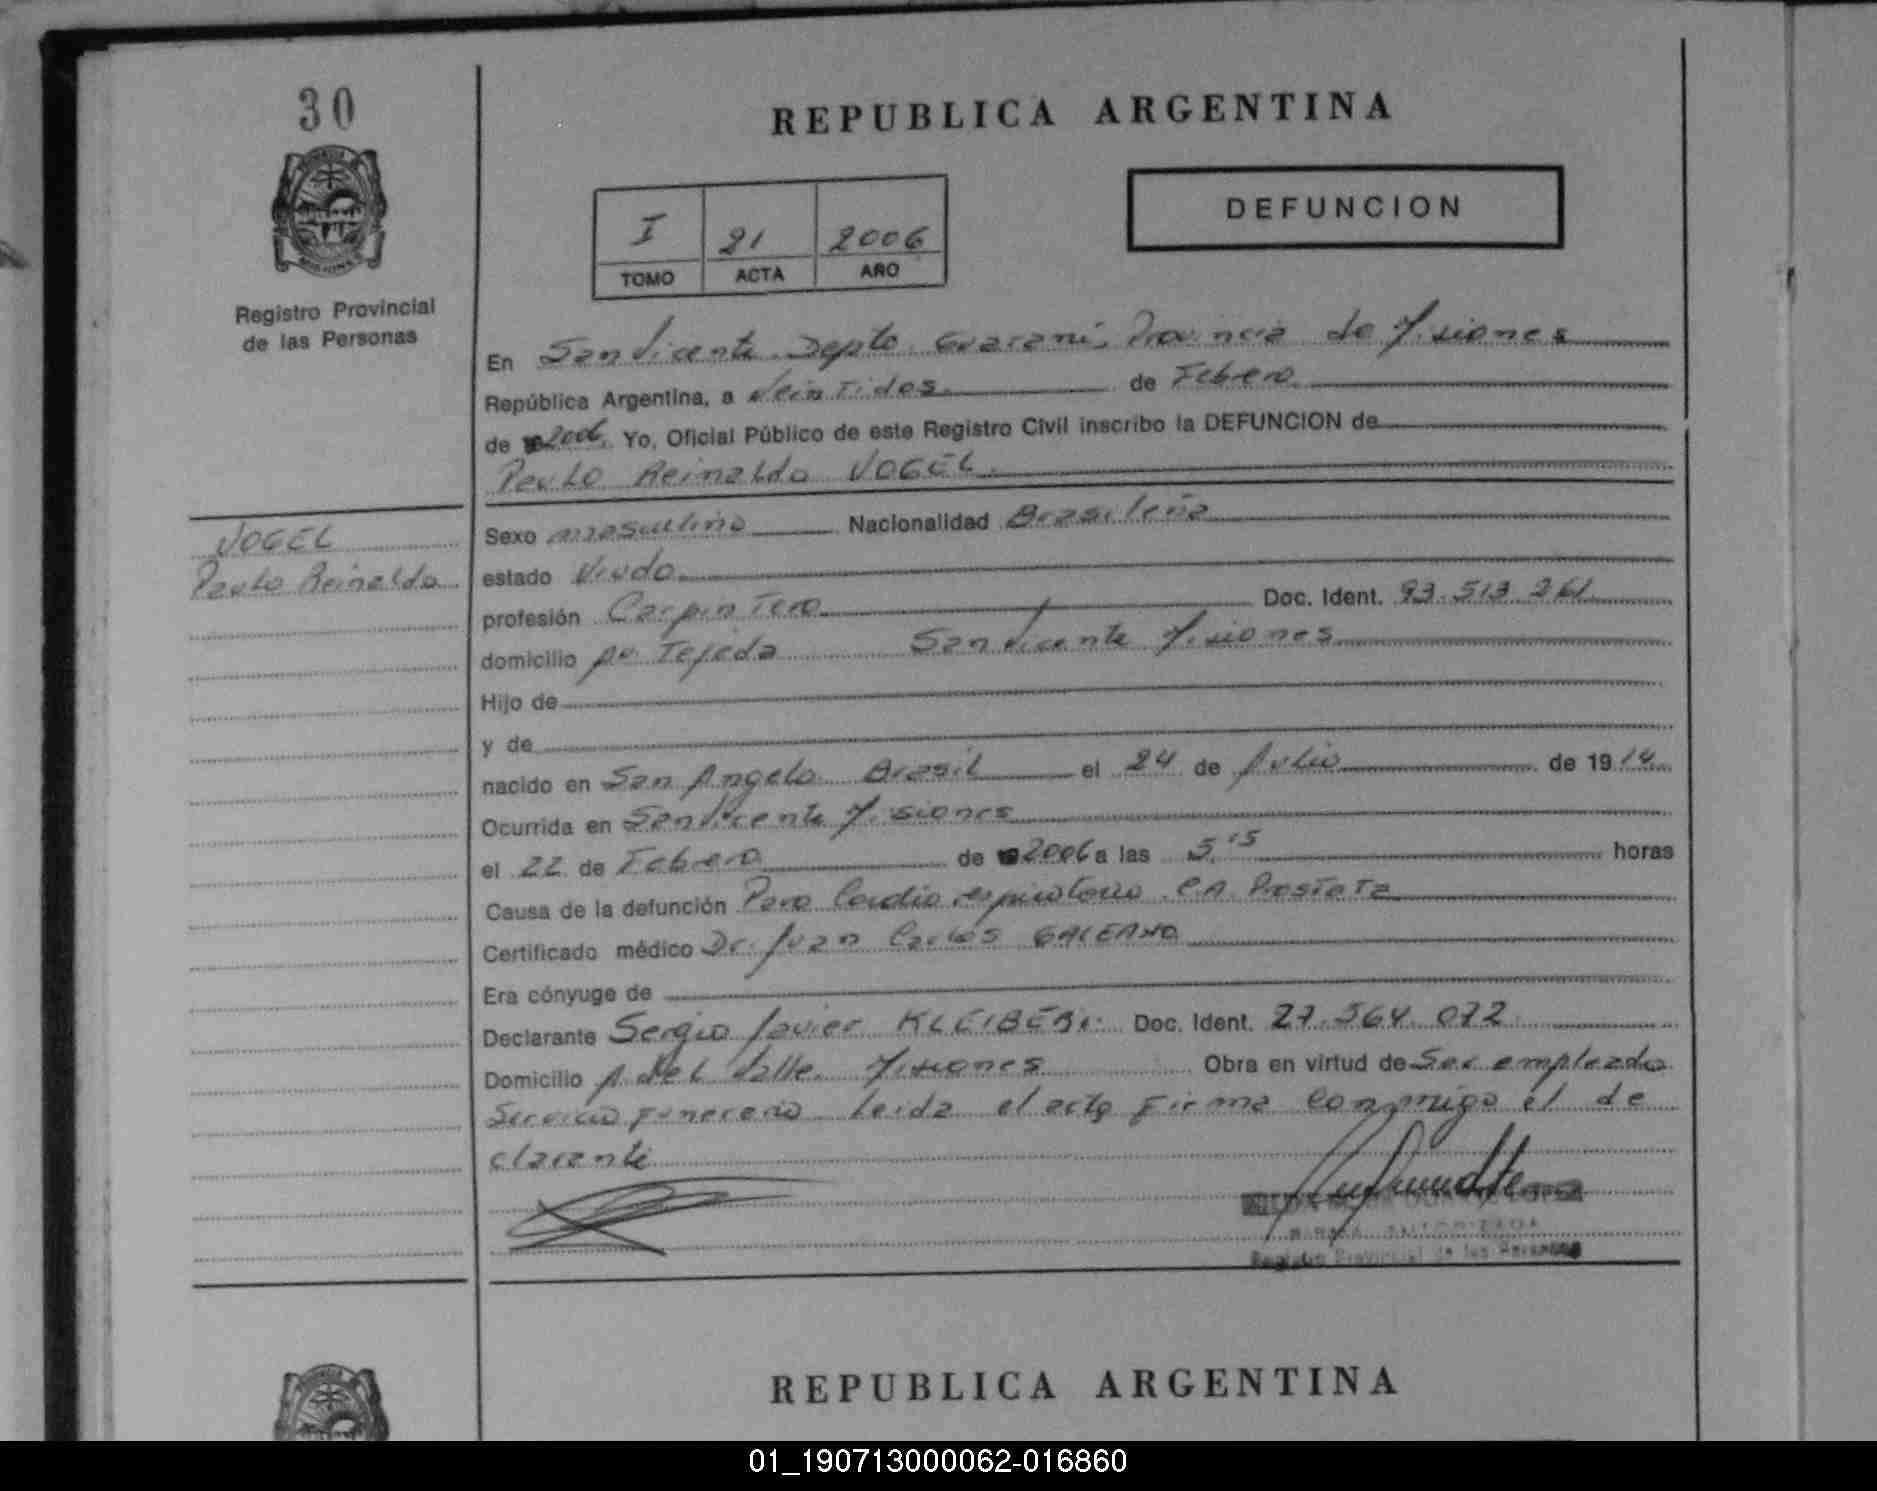 30
REPUBLICA ARGENTINA
DEFUNCION
I 21 2006
TOMO ACTA AÑO
Registro Provincial
de las Personas
En San Vicente Depto. Guaraní, Provincia de Misiones
República Argentina, a Veintidos de Febrero
de 2006. Yo, Oficial Público de este Registro Civil inscribo la DEFUNCION de
Paulo Reinaldo VOGEL
VOGEL
Paulo Reinaldo
Sexo masculino Nacionalidad Brasileña
estado Viudo
profesión Carpintero Doc. Ident. 93.513.261
domicilio Tejeda San Vicente Misiones
Hijo de
y de
nacido en San Angelo Brasil el 24 de Julio de 1914
Ocurrida en San Vicente Misiones
el 22 de Febrero de 2006 a las 5,15 horas
Causa de la defunción Paro Cardio respiratorio. CA. Prostata
Certificado médico Dr. Juan Carlos GALEANO
Era cónyuge de
Declarante Sergio Javier KLEIBER Doc. Ident. 27.564.072
Domicilio A. del Valle Misiones Obra en virtud de Ser empleado
Servicio Funerario leida el acta Firma Conmigo el de
clarante
Registro Provincial de las Personas
REPUBLICA ARGENTINA
01_190713000062-016860